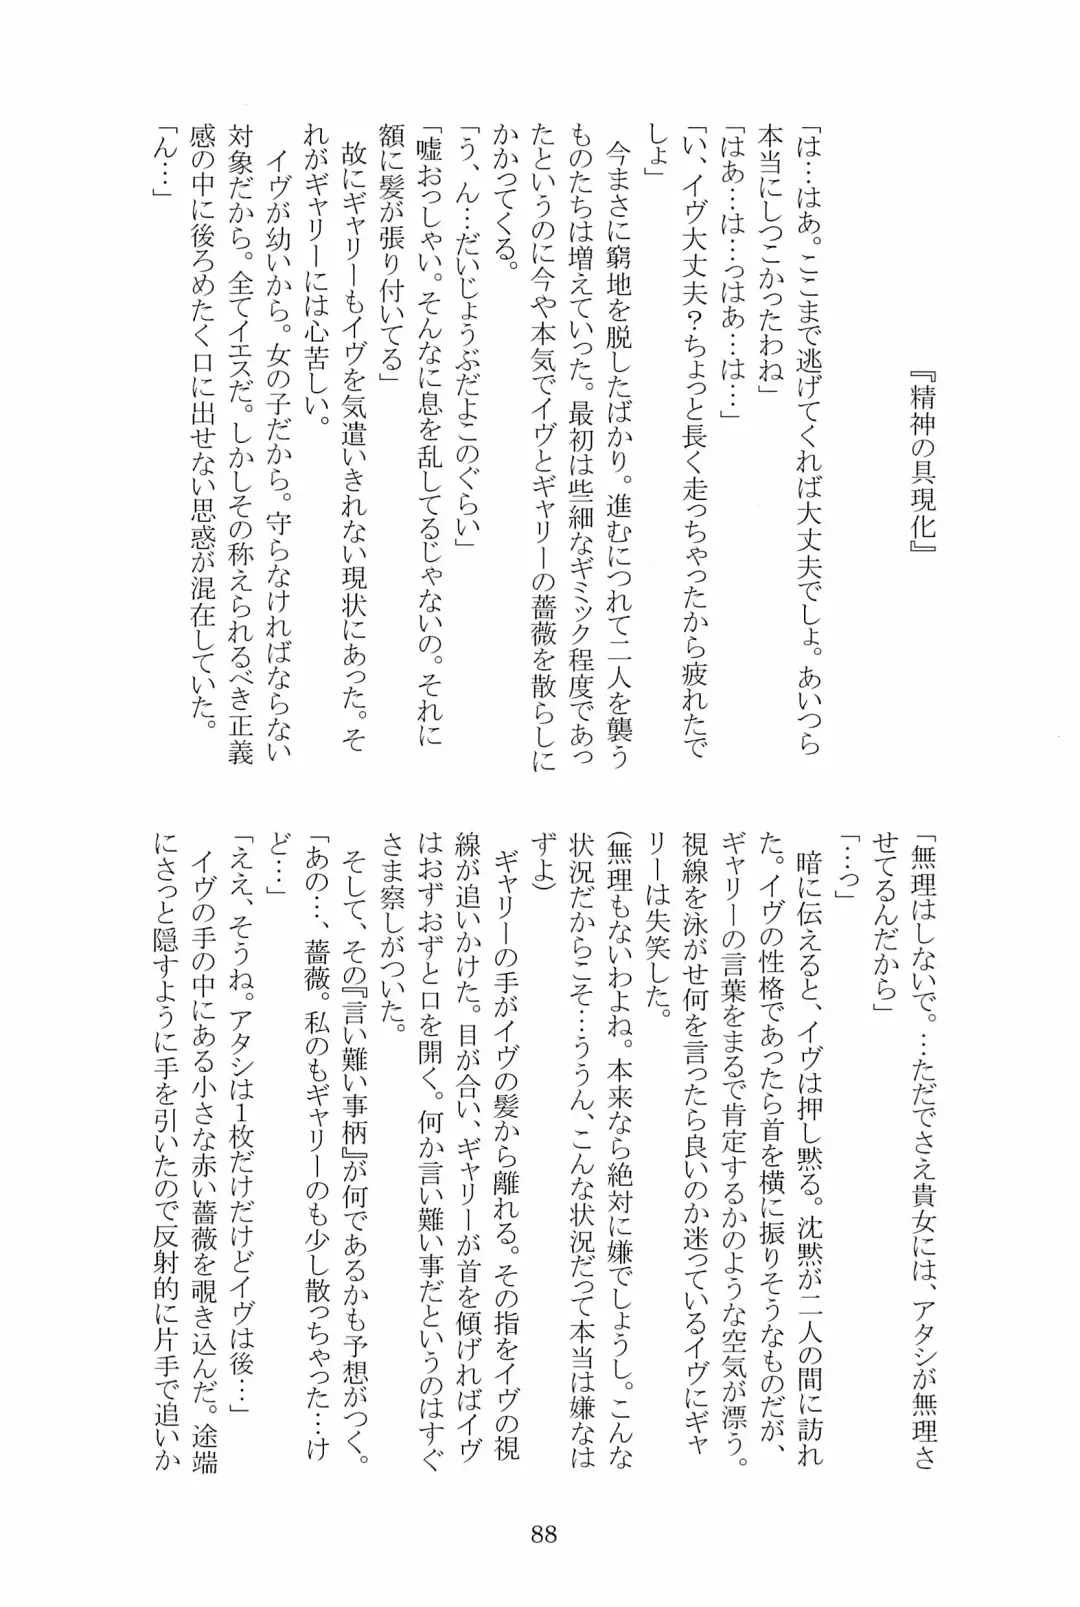 『精神の具現化』
「は…はあ。ここまで逃げてくれば大丈夫でしょ。あいつら
本当にしつこかったわね」
「はあ…は…っはあ…は…」
「い、イヴ大丈夫？ちょっと長く走っちゃったから疲れたで
しょ」
今まさに窮地を脱したばかり。進むにつれて二人を襲う
ものたちは増えていった。最初は些細なギミック程度であっ
たというのに今や本気でイヴとギャリーの薔薇を散らしに
かかってくる。
「う、ん…だいじょうぶだよこのぐらい」
「嘘おっしゃい。そんなに息を乱してるじゃないの。それに
額に髪が張り付いてる」
故にギャリーもイヴを気遣いきれない現状にあった。そ
れがギャリーには心苦しい。
イヴが幼いから。女の子だから。守らなければならない
対象だから。全てイエスだ。しかしその称えられるべき正義
感の中に後ろめたく口に出せない思惑が混在していた。
「ん…」
「無理はしないで。…ただでさえ貴女には、アタシが無理さ
せてるんだから」
「…っ」
暗に伝えると、イヴは押し黙る。沈黙が二人の間に訪れ
た。イヴの性格であったら首を横に振りそうなものだが、
ギャリーの言葉をまるで肯定するかのような空気が漂う。
視線を泳がせ何を言ったら良いのか迷っているイヴにギャ
リーは失笑した。
(無理もないわよね。本来なら絶対に嫌でしょうし。こんな
状況だからこそ…ううん、こんな状況だって本当は嫌なは
ずよ)
ギャリーの手がイヴの髪から離れる。その指をイヴの視
線が追いかけた。目が合い、ギャリーが首を傾げればイヴ
はおずおずと口を開く。何か言い難い事だというのはすぐ
さま察しがついた。
そして、その『言い難い事柄』が何であるかも予想がつく。
「あの…、薔薇。私のもギャリーのも少し散っちゃった…け
ど…」
「ええ、そうね。アタシは1枚だけだけどイヴは後…」
イヴの手の中にある小さな赤い薔薇を覗き込んだ。途端
にさっと隠すように手を引いたので反射的に片手で追いか
88